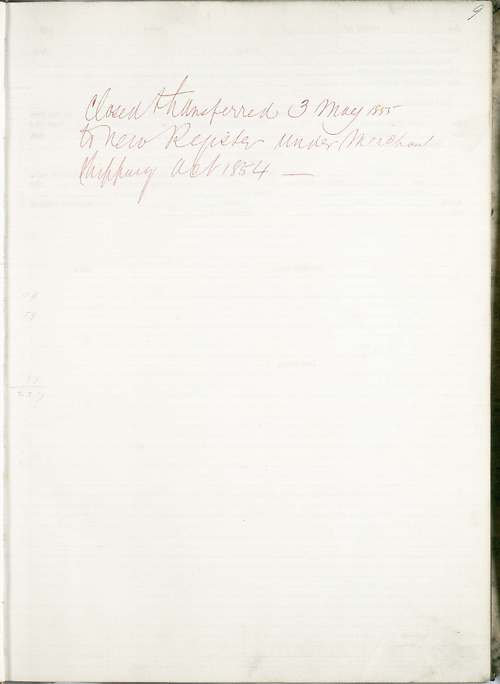 9
Closed & transferred 3 May 1855
to new Register under Merchant
Shipping Act 1854 —